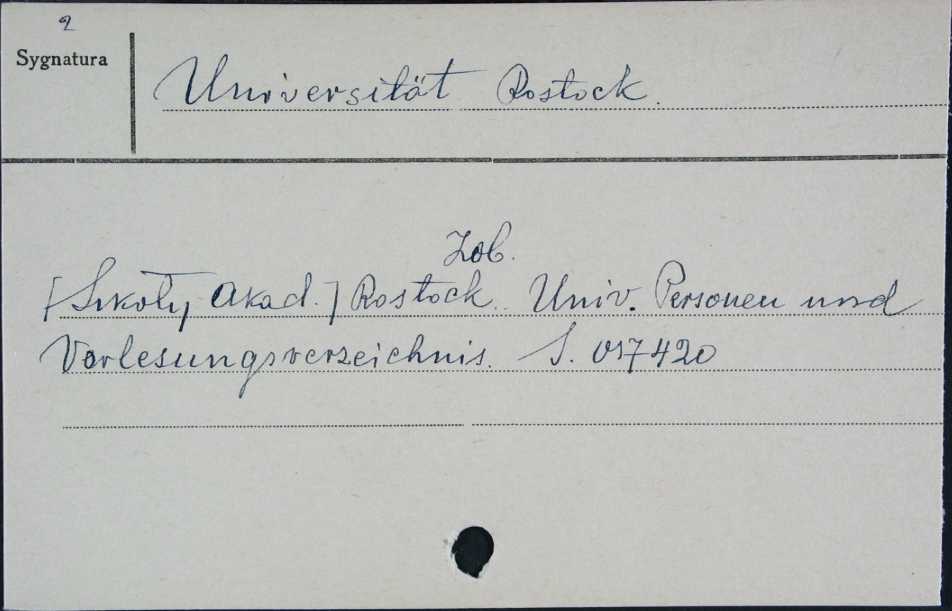 2
Sygnatura
Universität Rostock.
Zob.
[Szkoły Akad.] Rostock. Univ. Personen und
Vorlesungsverzeichnis. S. 017420